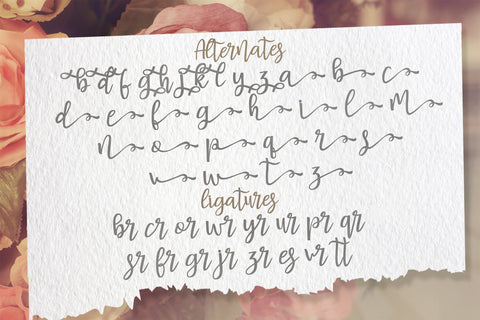 Alternates
b d f g h j k l y z a b c
d e f g h i l m
n o p q r s
v w t z
ligatures
br cr or wr yr ur pr qr
sr fr gr jr zr es vr tt